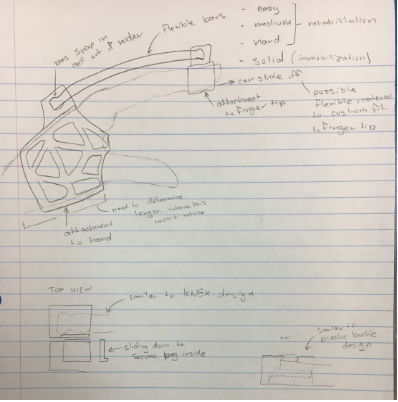 bars snap in
and out of
flexible bars
- easy
- medium
- hard
rehabilitation
- solid (immobilization)
can slide off
possible
flexible material
to custom fit
to finger tip
attachment
to finger tip
need to determine
length where this
won't move
attachment
to hand
TOP VIEW
similar to KNEX
design
sliding door to
secure peg inside
or
similar to
plastic buckle
design